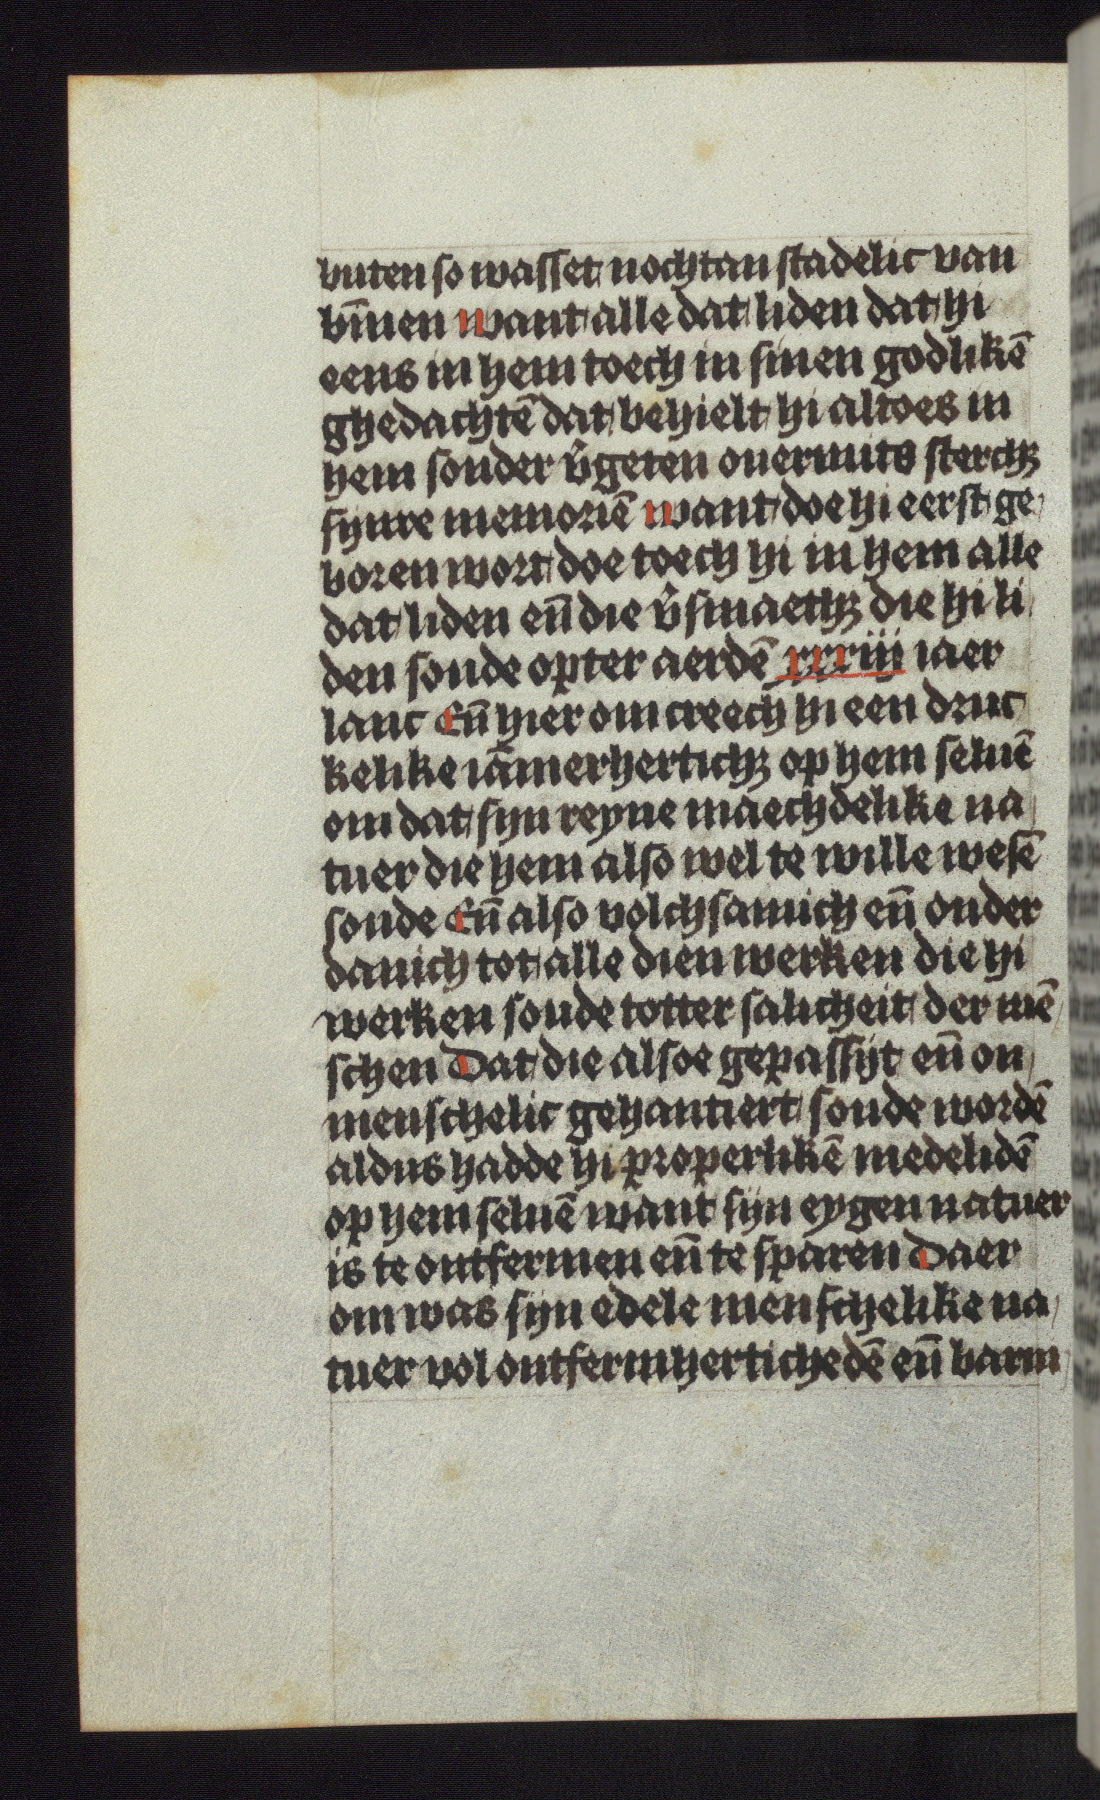 buten so wasset nochtan stadelic van
bīnen want alle dat liden dat hi
eens in hem toech in sinen godlikē
ghedachtē dat behielt hi altoes in
hem sonder v̄geten ouermits sterchꝫ
synre memoriē want doe hi eerst ge
boren wort doe toech hi in hem alle
dat liden en̄ die v̄smaethꝫ die hi li
den soude opter aerdē xxxiii iaer
lanc En̄ hier om creech hi een druc
kelike iāmerhertichꝫ op hem seluē
om dat syn reyne maechdelike na
tuer die hem also wel te wille wesē
soude En̄ also volchsamich en̄ onder
danich tot alle dien werken die hi
werken soude totter salicheit der mē
schen Dat die alsoe gepassijt en̄ on
menschelic gehantiert soude wordē
aldus hadde hi properlikē medelidē
op hem seluē want syn eygen natuer
is te ontfermen en̄ te sparen Daer
om was syn edele menschelike na
tuer vol ontfermhertichedē en̄ barm